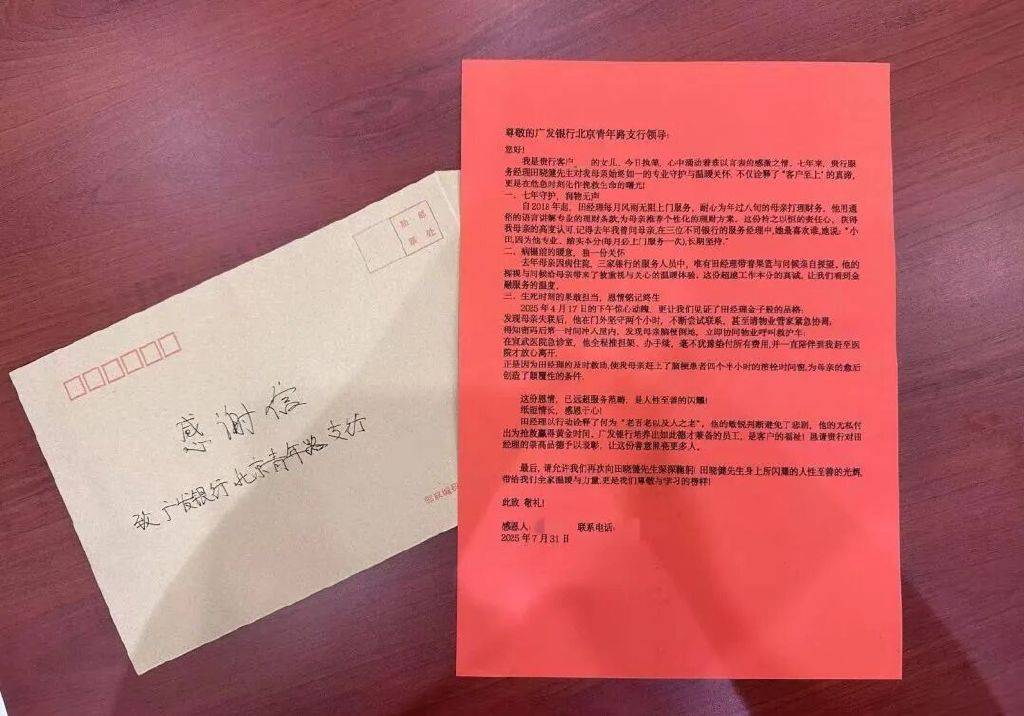 贴邮
票处
感谢信
致广发银行北京青年路支行
邮政编码
尊敬的广发银行北京青年路支行领导:
您好!
我是贵行客户 的女儿,今日执笔,心中涌动着难以言表的感激之情。七年来,贵行服
务经理田晓健先生对我母亲始终如一的专业守护与温暖关怀,不仅诠释了“客户至上”的真谛,
更是在危急时刻化作挽救生命的曙光!
一、七年守护,润物无声
自2018年起,田经理每月风雨无阻上门服务,耐心为年过八旬的母亲打理财务。他用通
俗的语言讲解专业的理财条款,为母亲推荐个性化的理财方案。这份持之以恒的责任心,获得
我母亲的高度认可,记得去年我曾问母亲,在三位不同银行的服务经理中,她最喜欢谁,她说:“小
田,因为他专业、踏实本分(每月必上门服务一次),长期坚持。”
二、病榻前的暖意,独一份关怀
去年母亲因病住院,三家银行的服务人员中,唯有田经理带着果篮与问候亲自探望。他的
探视与问候给母亲带来了被重视与关心的温暖体验。这份超越工作本分的真诚,让我们看到金
融服务的温度。
三、生死时刻的果敢担当,恩情铭记终生
2025年4月17日的下午惊心动魄,更让我们见证了田经理金子般的品格:
发现母亲失联后,他在门外坚守两个小时,不断尝试联系,甚至请物业管家紧急协调;
得知密码后第一时间冲入屋内,发现母亲脑梗倒地,立即协同物业呼叫救护车;
在宣武医院急诊室,他全程推担架、办手续,毫不犹豫垫付所有费用,并一直陪伴到我赶至医
院才放心离开。
正是因为田经理的及时救助,使我母亲赶上了脑梗患者四个半小时的溶栓时间窗,为母亲的愈后
创造了颠覆性的条件.
这份恩情,已远超服务范畴,是人性至善的闪耀!
纸短情长,感恩于心!
田经理以行动诠释了何为“老吾老以及人之老”。他的敏锐判断避免了悲剧,他的无私付
出为抢救赢得黄金时间。广发银行培养出如此德才兼备的员工,是客户的福祉!恳请贵行对田
经理的崇高品德予以表彰,让这份善意照亮更多人。
最后,请允许我们再次向田晓健先生深深鞠躬!田晓健先生身上所闪耀的人性至善的光辉,
带给我们全家温暖与力量,更是我们尊敬与学习的榜样!
此致 敬礼!
感恩人: 联系电话:
2025年7月31日